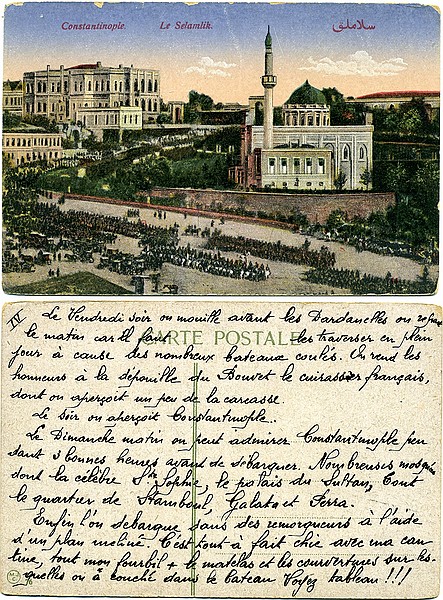 Constantinople. Le Selamlik. سلاملق
IV Le Vendredi soir on mouille avant les Dardanelles on
le matin car il faut les traverser en plein
CARTE POSTALE
jour à cause des nombreux bateaux coulés. On rend les
honneurs à la dépouille du Bouvet le cuirassier français,
dont on aperçoit un peu de la carcasse.
Le soir on aperçoit Constantinople..
Le Dimanche matin on peut admirer Constantinople pen
dant 3 bonnes heures avant de débarquer. Nombreuses mosquées
dont la célèbre Ste Sophie, le palais du Sultan, tout
le quartier de Stamboul, Galata et Perra.
Enfin l'on débarque dans des remorqueurs à l'aide
d'un plan incliné. C'est tout à fait chic avec ma can
tine, tout mon fourbil + le matelas et les couvertures sur les-
quelles on a couché dans le bateau Voyez tableau !!!